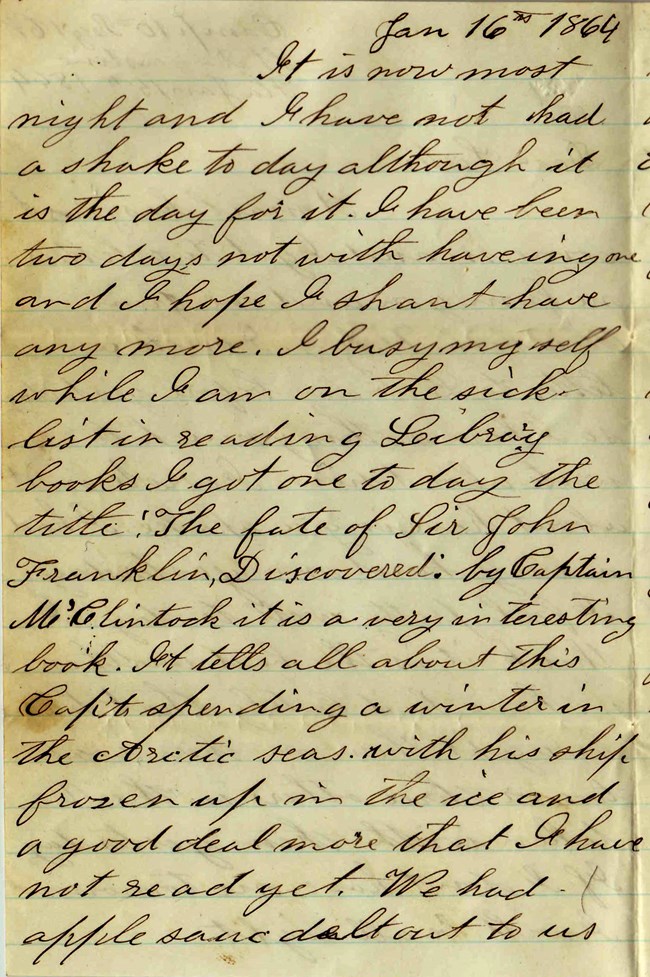 Jan 16th 1864
It is now most
night and I have not had
a shake to day although it
is the day for it. I have been
two days not with haveing one
and I hope I shant have
any more. I busy my self
while I am on the sick
list in reading Libray
books I got one to day the
title: "The fate of Sir John
Franklin, Discovered." by Captain
Mc'Clintock it is a very interesting
book. It tells all about this
Capts spending a winter in
the Arctic seas. with his ship
frozen up in the ice and
a good deal more that I have
not read yet. We had
apple sauc dealt out to us